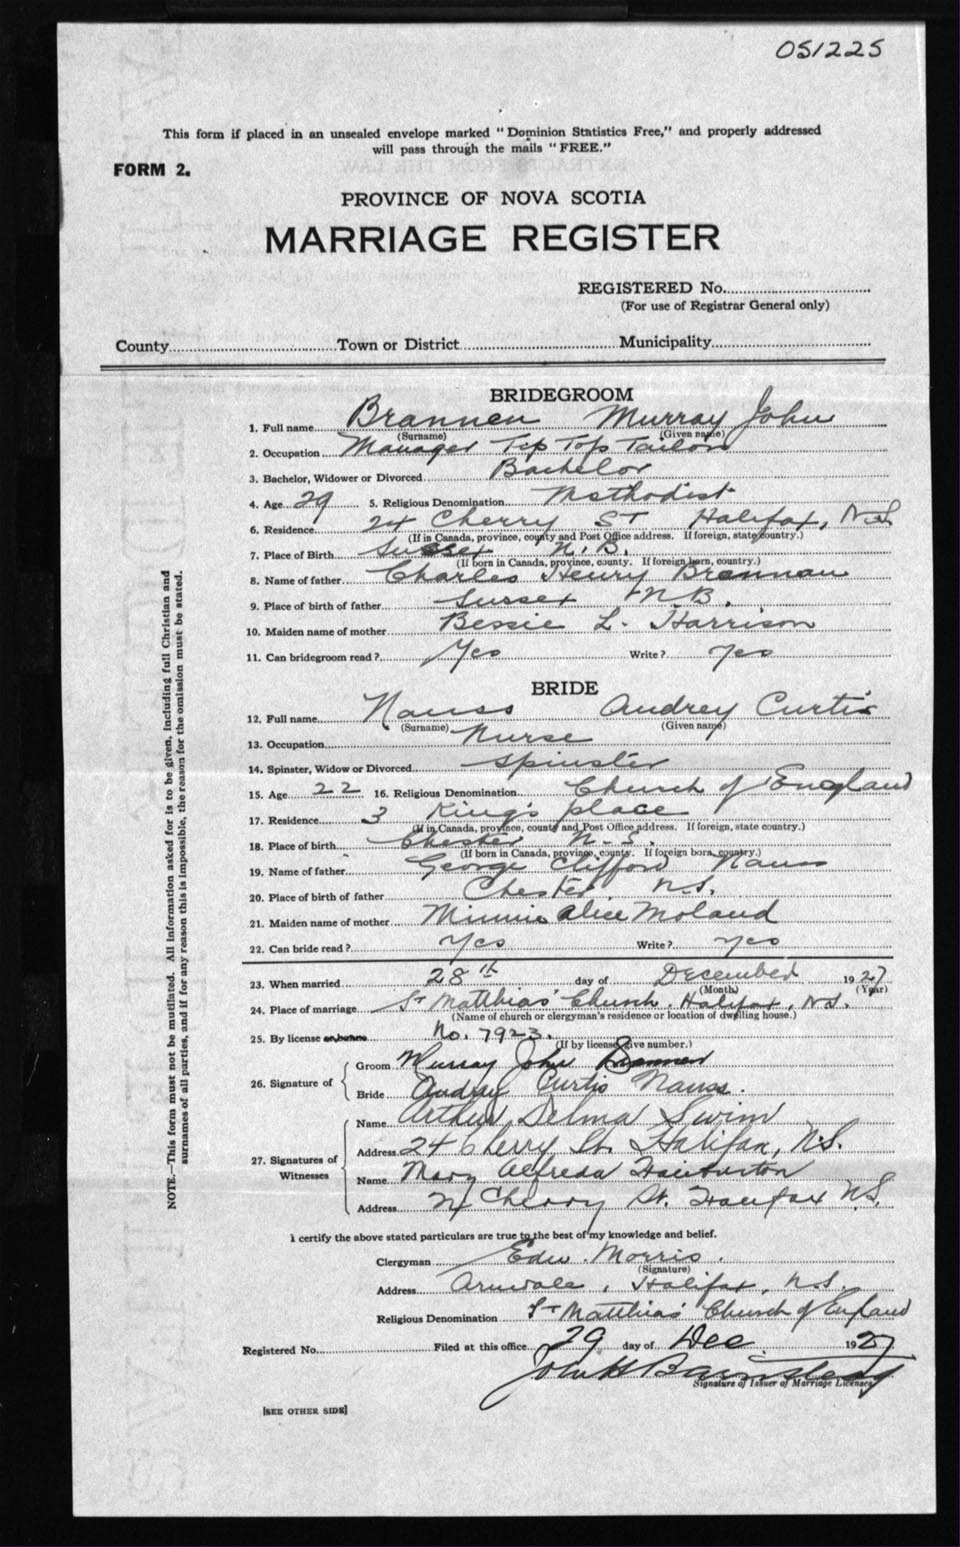 051225
This form if placed in an unsealed envelope marked "Dominion Statistics Free," and properly addressed
will pass through the mails "FREE."
FORM 2.
PROVINCE OF NOVA SCOTIA
MARRIAGE REGISTER
REGISTERED No.
(For use of Registrar General only)
County Town or District Municipality
BRIDEGROOM
1. Full name Brannen Murray John
(Surname) (Given name)
2. Occupation Manager Tip Top Tailors
3. Bachelor, Widower or Divorced Bachelor
4. Age 29 5. Religious Denomination Methodist
6. Residence 24 Cherry St Halifax, N.S.
(If in Canada, province, county and Post Office address. If foreign, state country.)
7. Place of Birth Sussex N.B.
(If born in Canada, province, county. If foreign born, country.)
8. Name of father Charles Henry Brennan
9. Place of birth of father Sussex N.B.
10. Maiden name of mother Bessie L. Harrison
11. Can bridegroom read? Yes Write? Yes
BRIDE
12. Full name Nauss Audrey Curtis
(Surname) (Given name)
13. Occupation Nurse
14. Spinster, Widow or Divorced Spinster
15. Age 22 16. Religious Denomination Church of England
17. Residence 3 King's place
(If in Canada, province, county and Post Office address. If foreign, state country.)
18. Place of birth Chester N.S.
(If born in Canada, province, county. If foreign born, country.)
19. Name of father George Clifford Nauss
20. Place of birth of father Chester N.S.
21. Maiden name of mother Minnie Alice Moland
22. Can bride read? Yes Write? Yes
23. When married 28th day of December 1927
(Month) (Year)
24. Place of marriage St Matthias' Church, Halifax, N.S.
(Name of church or clergyman's residence or location of dwelling house.)
25. By license or banns No. 7923.
(If by license give number.)
26. Signature of
Groom Murray John Brannen
Bride Audrey Curtis Nauss.
27. Signatures of Witnesses
Name Arthur Delma Swim
Address 24 Cherry St. Halifax, N.S.
Name Mary Alfreda
Address 24 Cherry St. Halifax N.S.
I certify the above stated particulars are true to the best of my knowledge and belief.
Clergyman Edw. Morris.
(Signature)
Address Armdale, Halifax, N.S.
Religious Denomination St Matthias' Church of England
Registered No. Filed at this office 29 day of Dec. 1927
John H Barnstead
Signature of Issuer of Marriage Licenses
[SEE OTHER SIDE]
NOTE.—This form must not be mutilated. All information asked for is to be given, including full Christian and
surnames of all parties, and if for any reason this is impossible, the reason for the omission must be stated.